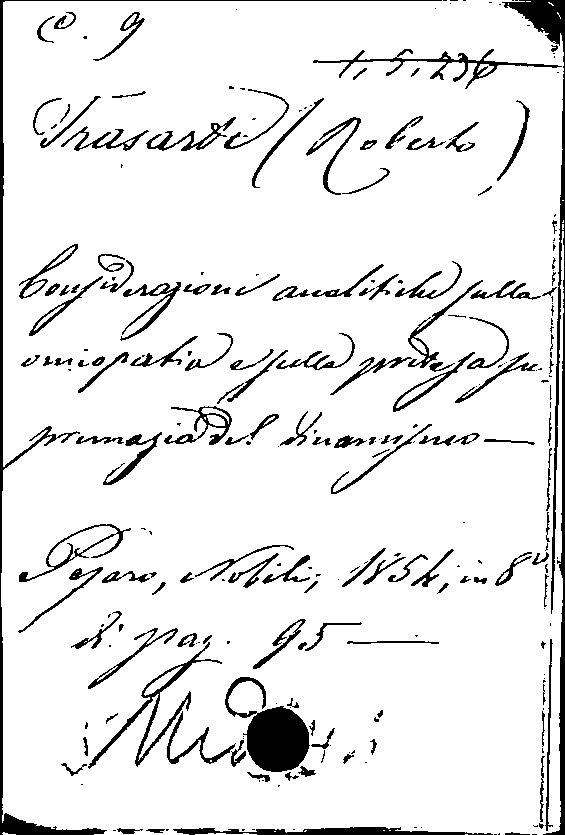 C. 9
1, 5, 236
Trasarti (Roberto)
Considerazioni analitiche sulla
omiopatia e sulla pretesa su-
premazia del dinamismo —
Pesaro, Nobili, 1854, in 8º
di pag. 95 —